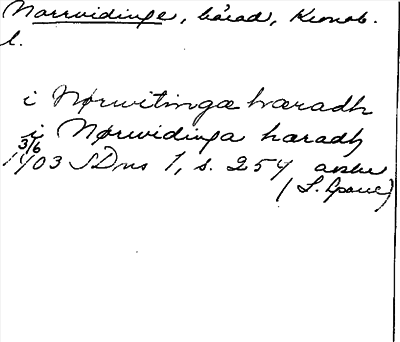 Norrvidinge, härad, Kronob.
l.
i Nørwitinga hæradh
i Nørwidinga haradh
3/6
1403 SDns 1, s. 254 avskr